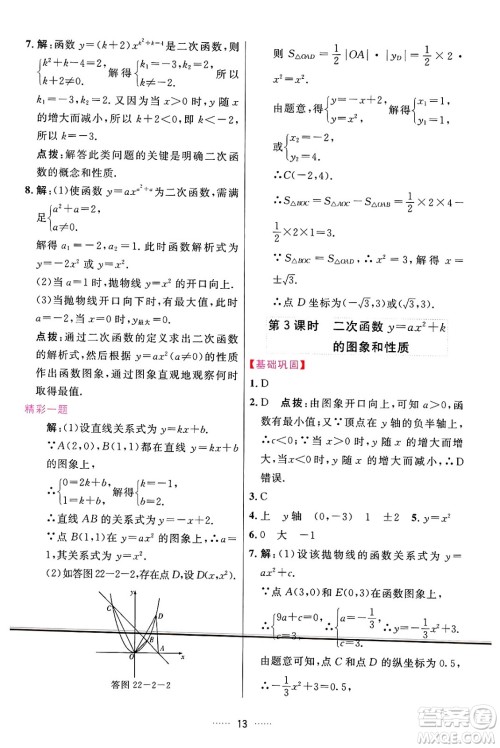 7. 解：函数 y=(k+2)x^{k²+k-4} 是二次函数，则
{k²+k-4=2, k+2≠0, 解得{k₁=-3, k₂=2, k≠-2. 所以
k₁=-3，k₂=2. 又因为当 x>0 时，y 随 x
的增大而减小，所以 k+2<0，即 k<-2，所
以 k=-3.
点拨：解答此类问题的关键是明确二次函
数的概念和性质.
8. 解：(1)使函数 y=ax^{a²+a} 为二次函数，需满
足{a²+a=2, a≠0.
解得 a₁=-2，a₂=1，此时函数解析式为
y=-2x² 或 y=x².
(2)当 a=1 时，抛物线的开口向上.
(3)当抛物线开口向下时，a=-2，函数有
最大值，y最大=0.
点拨：通过二次函数的定义求出二次函数
的解析式，然后根据二次函数的性质
作出函数图象，通过直观地观察函数何时
取得最值.
精彩一题
解：(1)设直线关系式为 y=kx+b.
∵A(2,0)，B(1,1)都在 y=kx+b
的图象上，
∴{0=2k+b, 1=k+b. 解得{k=-1, b=2.
∴直线 AB 的关系式为 y=-x+2.
∵点 B(1,1)在 y=ax² 的图象上，
∴a=1，其关系式为 y=x².
(2)如答图 22-2-2，设点 D(x,x²).
答图 22-2-2
则 S△OAD=1/2|OA|·|yD|=1/2×2×
x²=x².
由题意，得{y=-x+2, y=x². 解得{x=1, y=1 或{x=-2, y=4.
∴C(-2,4).
∵S△BOC=S△AOC-S△OAB=1/2×2×4-
1/2×2×1=3.
∵S△BOC=S△OAD，∴x²=3，即 x=
±√3.
∴点 D 坐标为(-√3,3)或(√3,3).
第 3 课时 二次函数 y=ax²+k
的图象和性质
【基础巩固】
1. D
2. D 点拨：由图象开口向上，可得 a>0，函
数有最小值；又顶点在 y 轴的负半轴上，
所以 c<0；当 x<0 时，y 随 x 的增大而减
小；当 x>0 时，y 随 x 的增大而增大. 故 D
错误.
3. C
4. 上 y轴 (0,-3) 1 ±2 5. y=x²
6. 0 大 -1
7. 解：(1)设该抛物线的函数关系式为 y=
ax²+c.
∵点 A(3,0)，B(0,3)在函数图象上，
∴{9a+c=0, c=3. 解得{a=-1/3, c=3. ∴y=-1/3x²+3.
由题意可知，点 C 和点 D 的纵坐标为 1.
13